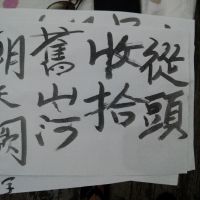 從頭
收拾
舊山河
朝天闕